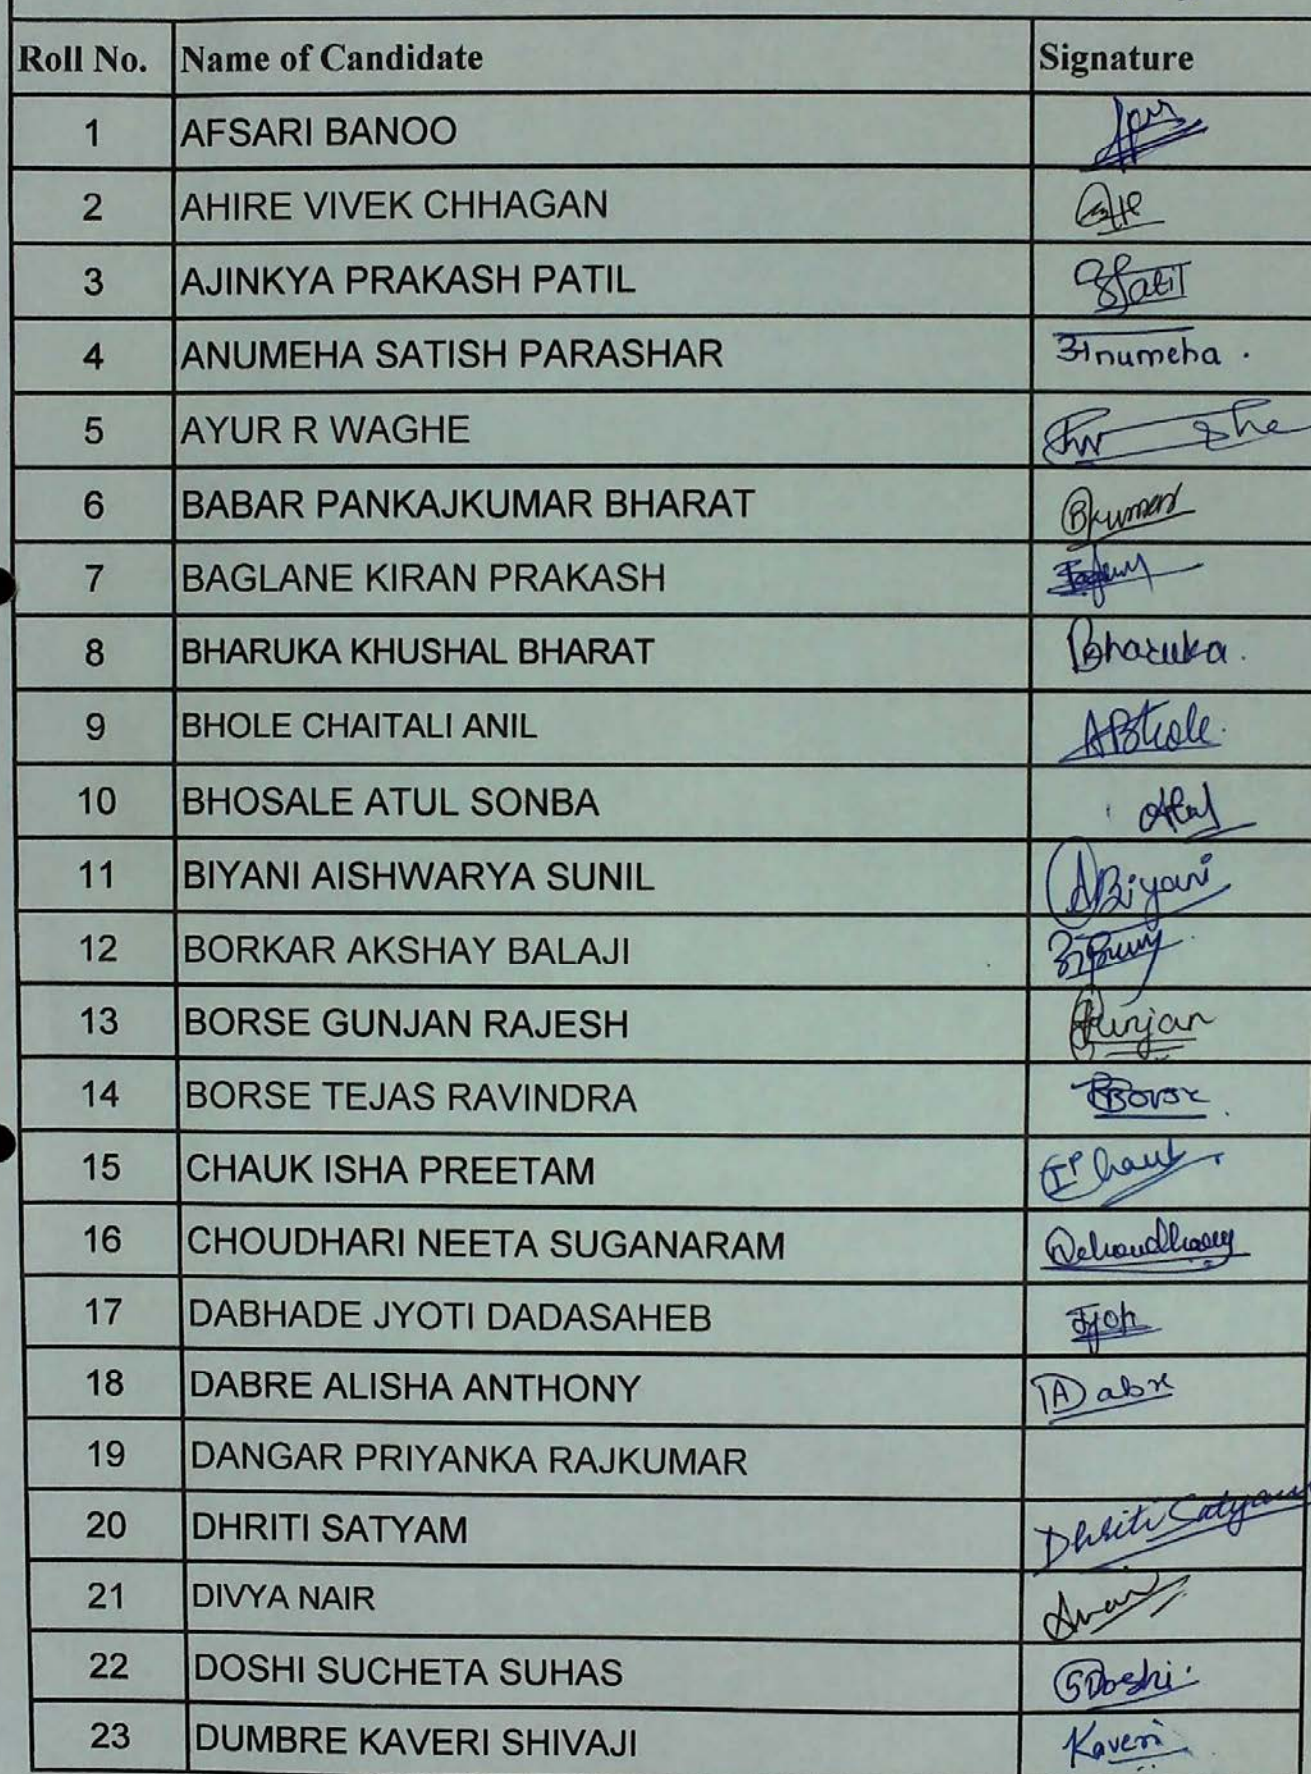 Roll No. Name of Candidate Signature
1 AFSARI BANOO
2 AHIRE VIVEK CHHAGAN
3 AJINKYA PRAKASH PATIL Patil
4 ANUMEHA SATISH PARASHAR अnumeha .
5 AYUR R WAGHE
6 BABAR PANKAJKUMAR BHARAT
7 BAGLANE KIRAN PRAKASH
8 BHARUKA KHUSHAL BHARAT Bharuka.
9 BHOLE CHAITALI ANIL ABhole.
10 BHOSALE ATUL SONBA
11 BIYANI AISHWARYA SUNIL ABiyani
12 BORKAR AKSHAY BALAJI
13 BORSE GUNJAN RAJESH Gunjan
14 BORSE TEJAS RAVINDRA
15 CHAUK ISHA PREETAM
16 CHOUDHARI NEETA SUGANARAM
17 DABHADE JYOTI DADASAHEB
18 DABRE ALISHA ANTHONY
19 DANGAR PRIYANKA RAJKUMAR
20 DHRITI SATYAM Dhriti Satyam
21 DIVYA NAIR
22 DOSHI SUCHETA SUHAS SDoshi.
23 DUMBRE KAVERI SHIVAJI Kaveri